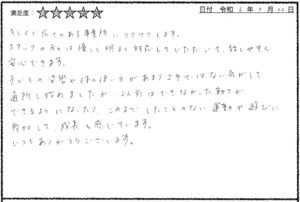 満足度: ☆☆☆☆☆ 日付 令和 6年 3月 22日
キレイで広さのある事業所にワクワクします。
スタッフの方々は優しく明るく対応していただいて、話しやすく
安心できます。
子どもの姿勢や体の使い方があまり上手ではない気がして
通所し始めましたが、以前はできなかった動きが
できるようになったり、これまでしたことのない運動や遊びに
参加して、成長も感じています。
いつもありがとうございます。